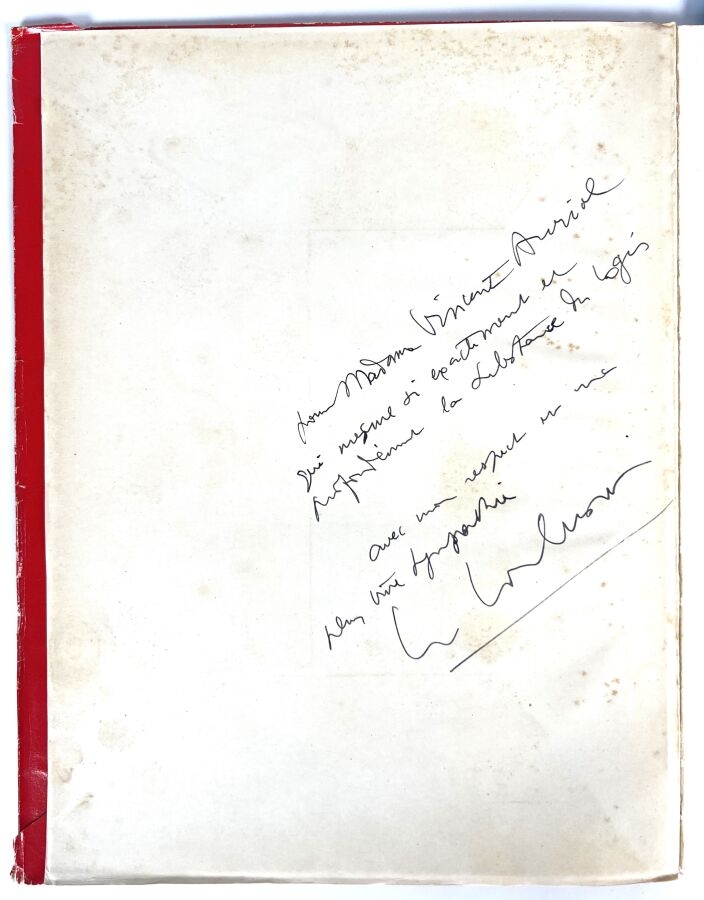 pour Madame Vincent Auriol
qui mesure si exactement et
profondément la substance du logis
avec mon respect et ma
plus vive sympathie
Le Corbusier